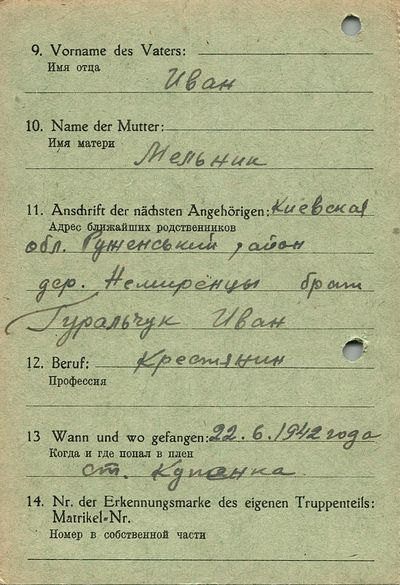 9. Vorname des Vaters:
Имя отца
Иван
10. Name der Mutter:
Имя матери
Мельник
11. Anschrift der nächsten Angehörigen: Киевская
Адрес ближайших родственников
обл. Руженський район
дер. Немиренцы брат
Гуральчук Иван
12. Beruf: Крестянин
Профессия
13 Wann und wo gefangen: 22.6.1942 года
Когда и где попал в плен
ст. Купянка
14. Nr. der Erkennungsmarke des eigenen Truppenteils:
Matrikel-Nr.
Номер в собственной части